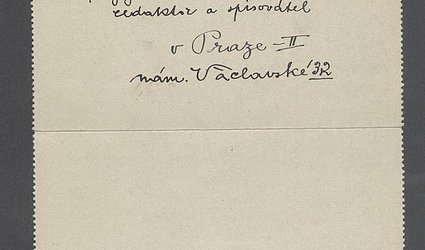 redaktor a spisovatel
v Praze – II
mám. Václavské 32